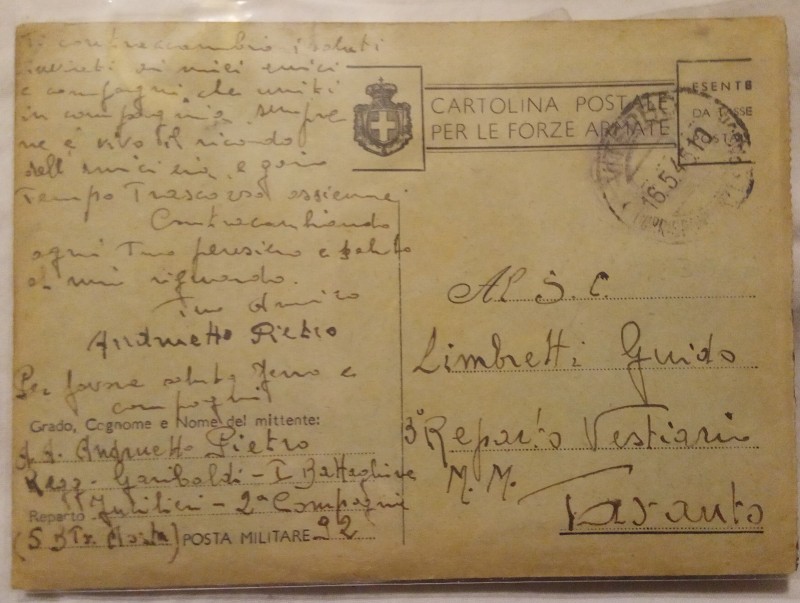 Ti contraccambio i saluti
inviati ai miei amici
e compagni che uniti
in compagnia sempre
ne è vivo il ricordo
dell'amicizia e gaio
Tempo Trascorso assieme.
Contracambiando
ogni Tuo pensiero e saluto
a mio riguardo.
Tuo Amico
Andruetto Pietro
Per favore saluta e
compagni
CARTOLINA POSTALE
PER LE FORZE ARMATE
ESENTE
DA TASSE
POSTALI
16.5.
Al S. C.
Limbretti Guido
3° Reparto Vestiario
M. M.
Taranto
Grado, Cognome e Nome del mittente:
Andruetto Pietro
Regg. Garibaldi - I Battaglione
Reparto - 2ª Compagnia
POSTA MILITARE 92